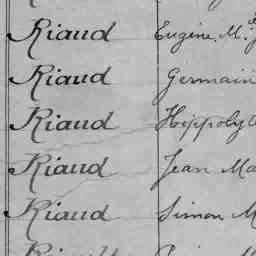 Riaud Eugène. M.
Riaud Germain
Riaud Hippolyt
Riaud Jean Ma
Riaud Simon M